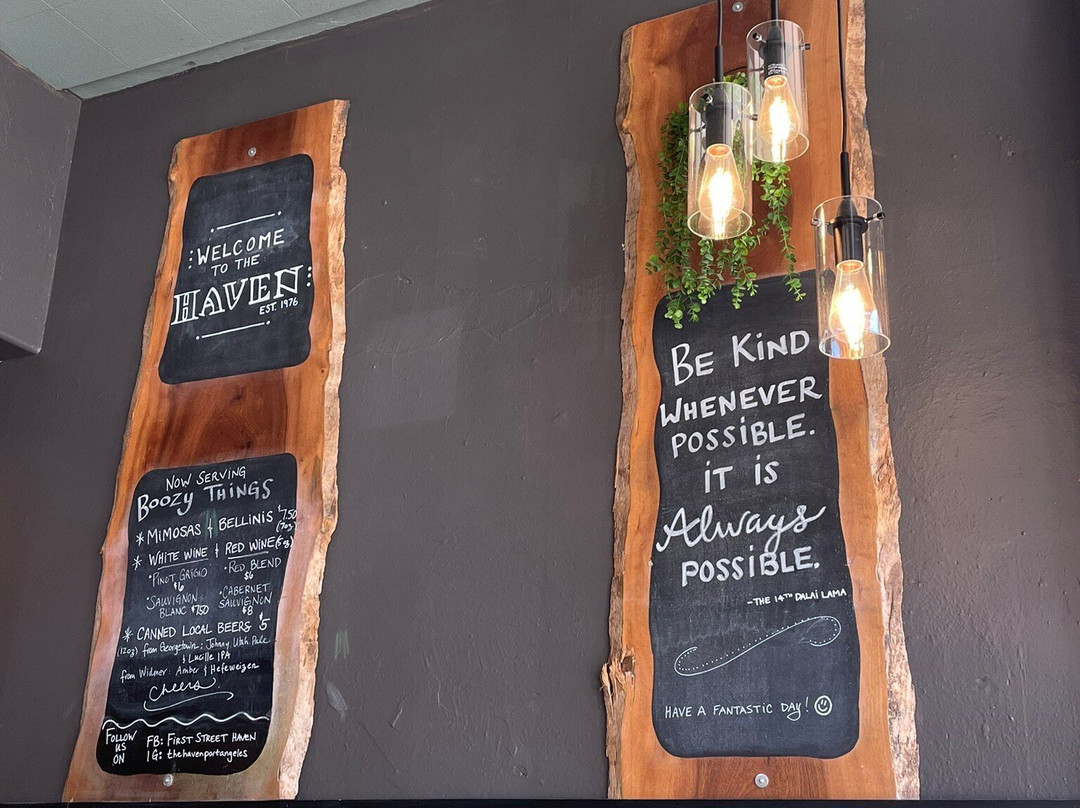 WELCOME
TO THE
HAVEN
EST. 1976
NOW SERVING
BOOZY THINGS
* MIMOSAS & BELLINIS $7.50
(7oz)
* WHITE WINE & RED WINE (6oz)
• PINOT GRIGIO
$6
• SAUVIGNON
BLANC $7.50
• RED BLEND
$6
• CABERNET
SAUVIGNON
$8
* CANNED LOCAL BEERS $5
(12oz) from Georgetown: Johnny Utah Pale
& Lucille IPA
from Widmer: Amber & Hefeweizen
Cheers
FOLLOW
US
ON
FB: FIRST STREET HAVEN
IG: thehavenportangeles
BE KIND
WHENEVER
POSSIBLE.
iT iS
Always
POSSIBLE.
-THE 14TH DALAI LAMA
HAVE A FANTASTIC DAY! ☺